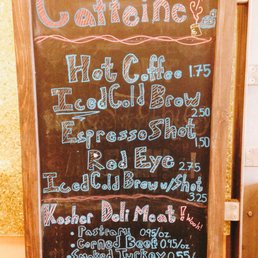 Caffeine!
Hot Coffee 1.75
Iced Cold Brew 2.50
Espresso Shot 1.50
Red Eye 2.75
Iced Cold Brew w/Shot 3.25
Kosher Deli Meat!
• Pastrami .095/oz
• Corned Beef .095/oz
• Smoked Turkey 0.55/